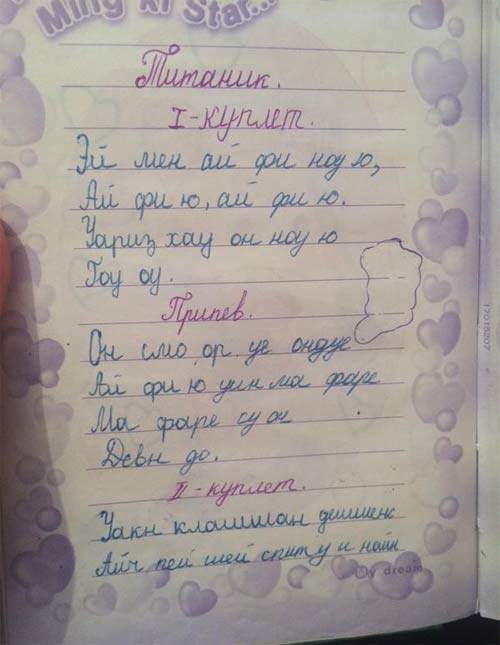 Ming ki Star...
Титаник.
I-куплет.
Эй мен ай фи ноу ю,
Ай фи ю, ай фи ю.
Уариз хау он ноу ю
Гоу оу.
Припев.
Он смо ор уе ондуе
Ай фи ю уин ма фаре
Ма фаре су он
Девн до.
II-куплет.
Уакн клашшан дишшенс
Айч пей шей спит у и найн
My dream
17018207